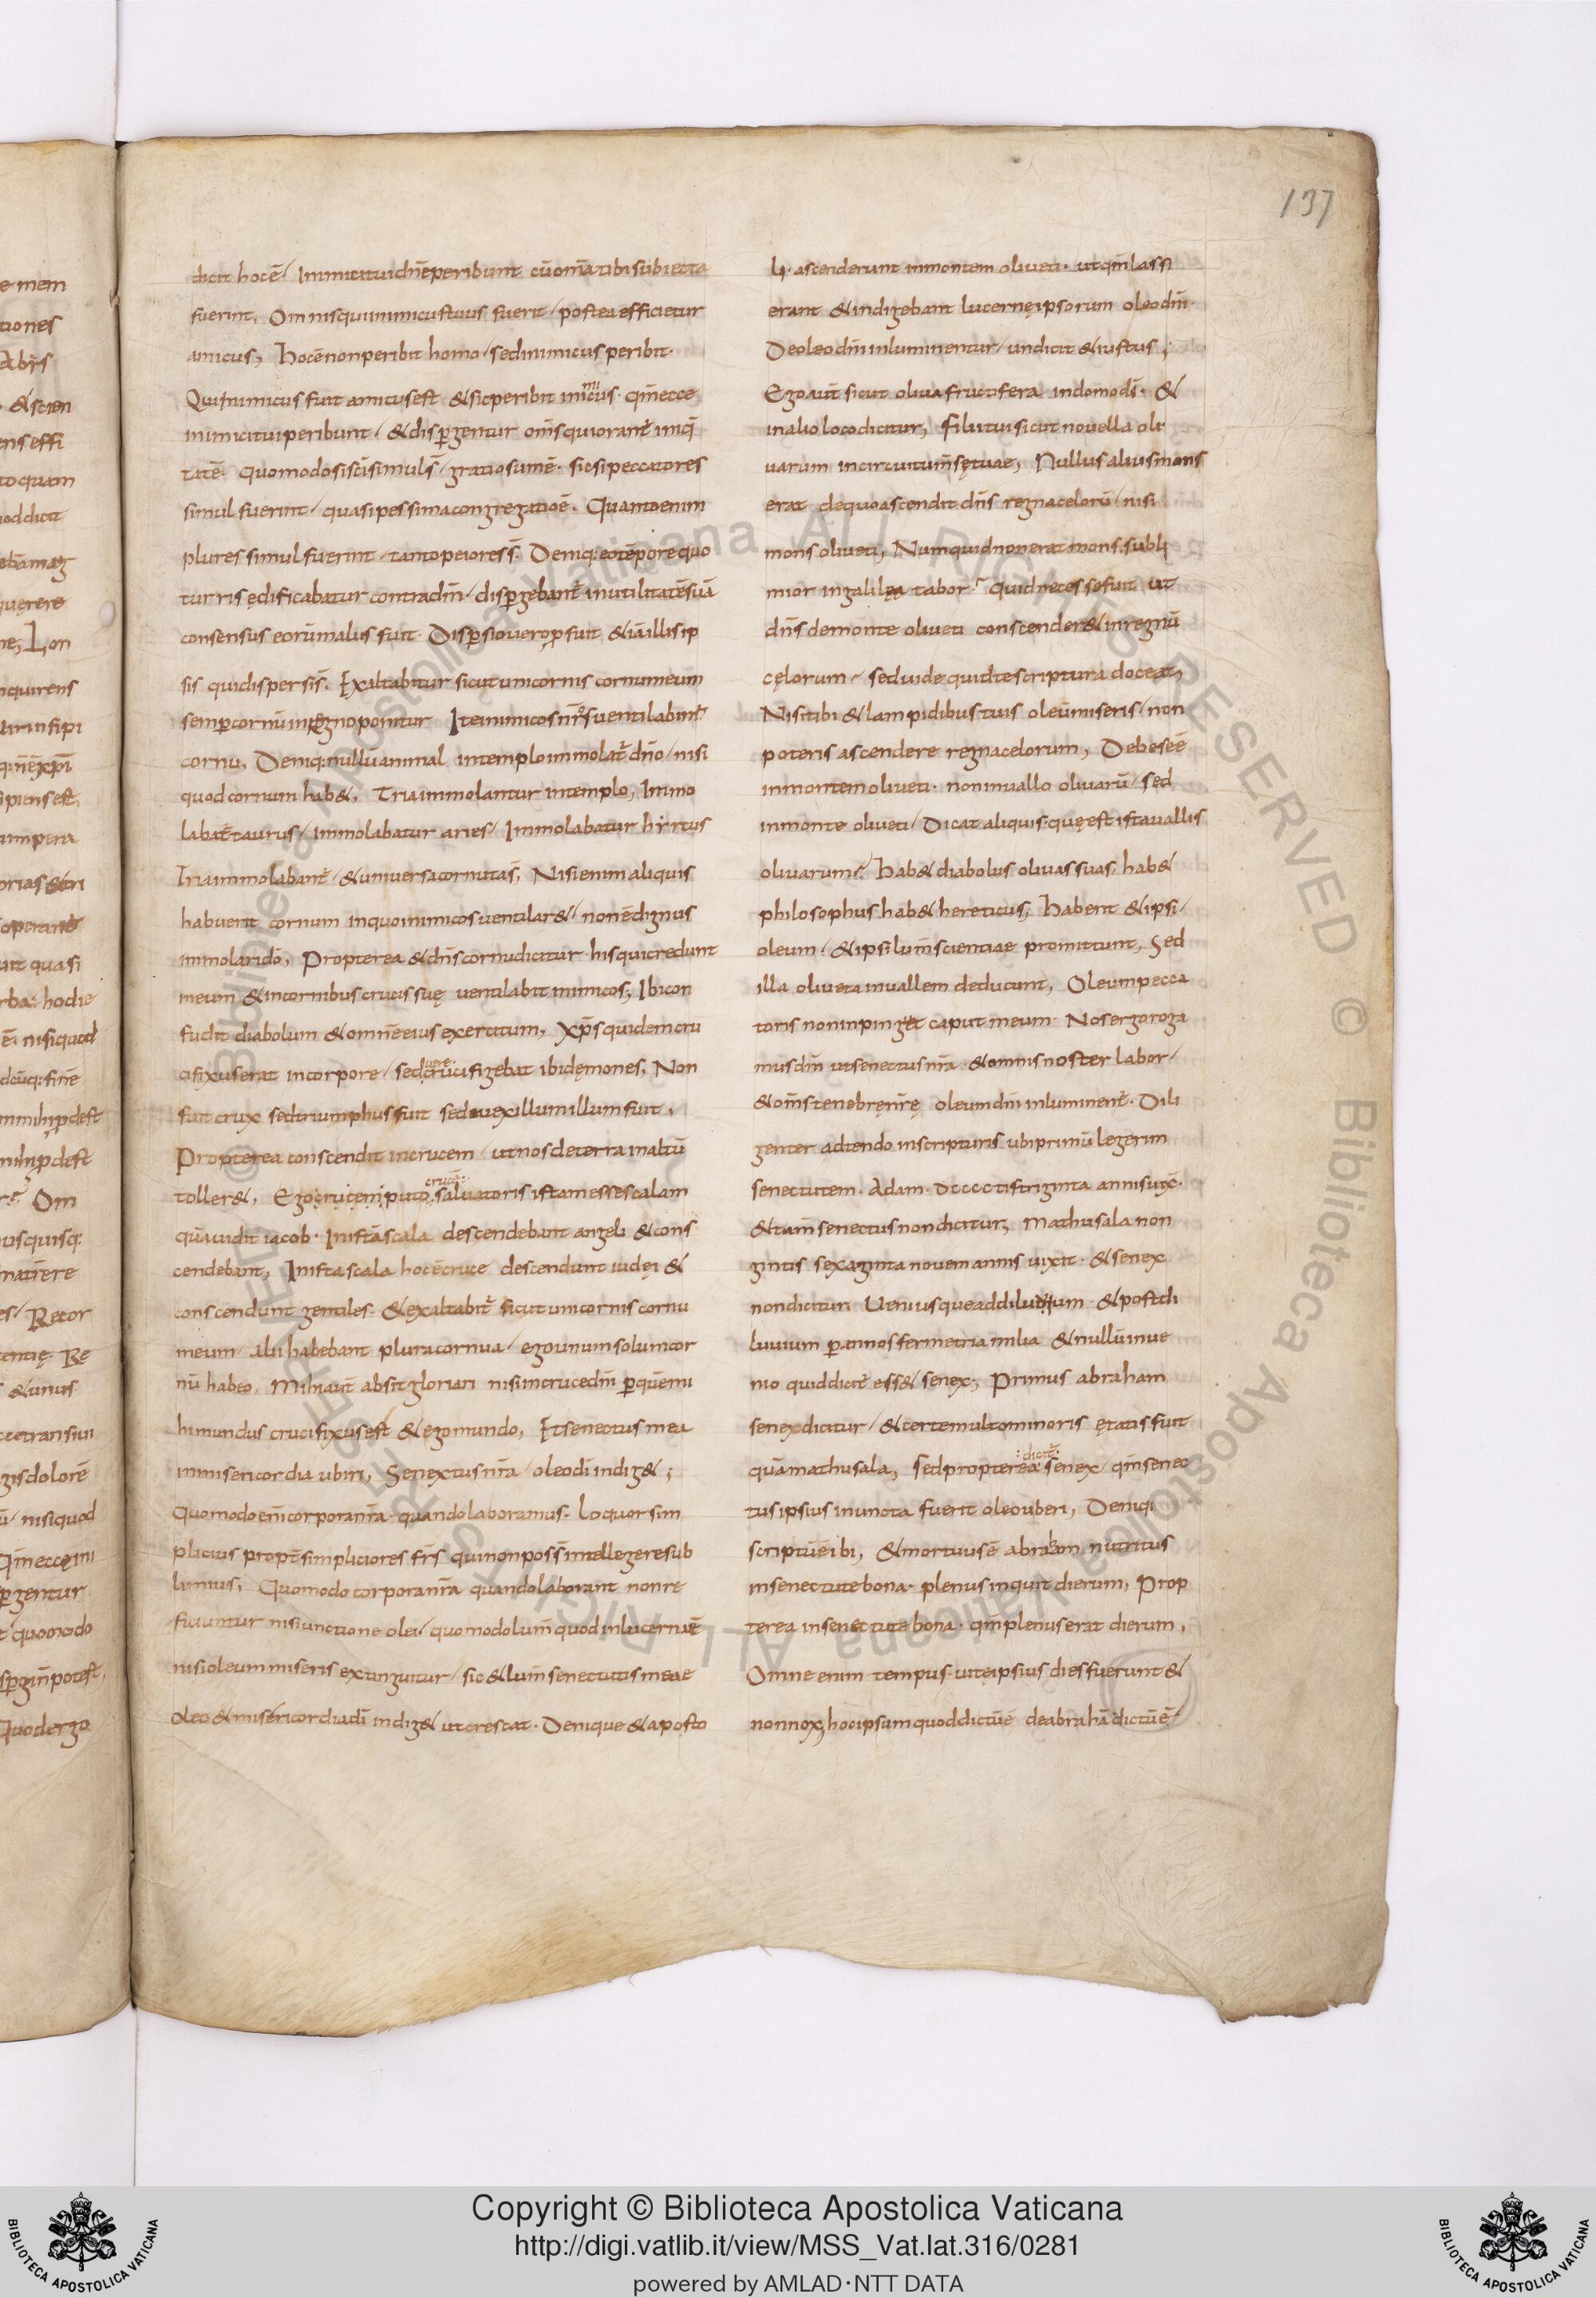 dicit hocē / Inimicitui dn̄e peribunt cū om̄a tibi subiecta
fuerint. Omnis qui inimicus tuus fuerit / postea efficietur
amicus; Hoc ē non peribit homo / sed inimicus peribit.
Qui inimicus fuit amicus est & sic peribit inimicus. qm̄ ecce
inimici tui peribunt / & disp̄gentur om̄s qui operant̄ iniq̄
tatē. Quomodo si sc̄i simul s̄ / gratiosum ē. sic si peccatores
simul fuerint / quasi pessima congregatio ē. Quanto enim
plures simul fuerint / tanto peiores s̄. Deniq: eo tēpore quo
turris ędificabatur contra dm̄ / disp̄gebant̄ in utilitatē suā
consensus eorū malus fuit. Disp̄sio vero p̱fuit & iā illis ip
sis qui dispersi s̄. Exaltabitur sicut unicornis cornu meum
semp̄ cornū in regno ponitur Item inimicos nr̄os ventilabim̄
cornu. Deniq: nullū animal in templo immolat̄ dn̄o / nisi
quod cornum hab&. Tria immolantur in templo; Immo
labat̄ taurus / immolabatur aries / Immolabatur hyrcus
Tria immolabant̄ / & universa cornuta s̄; Nisi enim aliquis
habuerit cornum in quo inimicos ventilar& / non ē dignus
immolando; Propterea & dn̄s cornu dicitur his qui credunt
in eum & in cornibus crucis suę ventilabit inimicos; Ibi con
fudit diabolum & omnē eius exercitum; Xp̄s quidem cru
cifixus erat in corpore / sed vere crucifigebat ibi dęmones; Non
fuit crux sed triumphus fuit sed vexillum illum fuit;
Propterea conscendit in crucem / ut nos de terra in altū
toller&. Ego crucem puto crucē salvatoris istam esse scalam
quā vidit iacob. In istā scala descendebant angeli & cons
cendebant; In ista scala hoc ē cruce descendunt iudęi &
conscendunt gentiles. & exaltabit̄ sicut unicornis cornu
meum alii habebant plura cornua / ego unum solum cor
nū habeo. Mihi aūt absit gloriari nisi in cruce dn̄i p̄ quem mi
hi mundus crucifixus est & ego mundo. Et senectus mea
in misericordia uberi; Senectus nr̄a / oleo dī indig& ;
Quomodo enī corpora nr̄a quando laboramus. Loquor sim
plicius propt̄ simpliciores fr̄s qui non poss̄ intellegere sub
limius; Quomodo corpora nr̄a quando laborant non re
ficiuntur nisi unctione olei / quomodo lum̄ quod in lucerna ē
nisi oleum miseris extinguitur / sic & lum̄ senectutis meae
oleo & misericordia dī indig& ut crescat. Denique & aposto
li. ascenderunt in montem oliveti. ut qm̄ lassi
erant & indigebant lucernę ipsorum oleo dn̄i.
De oleo dn̄i inluminentur / undicit & iustus ;
Ego aūt sicut oliva fructifera in domo dī. &
in alio loco dicitur; Filii tui sicut novella oli
varum in circuitu m̄sę tuae; Nullus alius mons
erat de quo ascendit dn̄s regna celorū / nisi
mons oliveti; Numquid non erat mons subli
mior in galilęa tabor? Quid necesse fuit ut
dn̄s de monte oliveti conscender& in regnū
cęlorum / sed vide quid te scriptura doceat;
Nisi tibi & lampidibus tuis oleū miseris / non
poteris ascendere regna celorum; Debes eē
in montem oliveti. non in vallo olivarū / sed
in monte oliveti / Dicat aliquis. quę est ista vallis
olivarum? Hab& diabolus olivas suas. hab&
philosophus. hab& hereticus; Habent & ipsi /
oleum / & ipsi lum̄ scientiae promittunt; Sed
illa oliveta in vallem deducunt; Oleum pecca
toris non inpinguet caput meum. Nos ergo roga
mus dm̄ ut senectus nr̄a & omnis noster labor /
& om̄s tenebrę nr̄ę oleum dn̄i inluminent̄. Dili
genter adtendo in scripturis ubi primū legerim
senectutem. Adam. DCCCC tistriginta annis vix̄.
& tam̄ senectus non dicitur; Mathusala non
gintis sexaginta novem annis vixit. & senex
non dicitur. Veni usque ad diluvium & post di
luvium p̄ annos ferme tria milia & nullū inve
nio quid dict̄ ess& senex; Primus abraham
senex dicitur / & certe multo minoris ętatis fuit
quā mathusala; Sed propterea dicit̄ senex / qm̄ senec
tus ipsius inuncta fuerit oleo uberi; Deniq:
scriptū ē ibi; & mortuus ē abraham nutritus
in senectute bona. plenus inquit dierum; Prop
terea in senectute bona. qm̄ plenus erat dierum;
Omne enim tempus vitę ipsius dies fuerunt &
non nox; hoc ipsum quod dictū ē de abrahā dictū ē
137
Copyright © Biblioteca Apostolica Vaticana
http://digi.vatlib.it/view/MSS_Vat.lat.316/0281
powered by AMLAD·NTT DATA